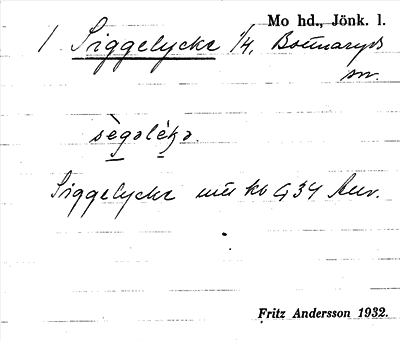 Mo hd., Jönk. l.
1 Siggelycke 1/4, Bottnaryds
sn.
sègəléḱə.
Siggelycke
Fritz Andersson 1932.